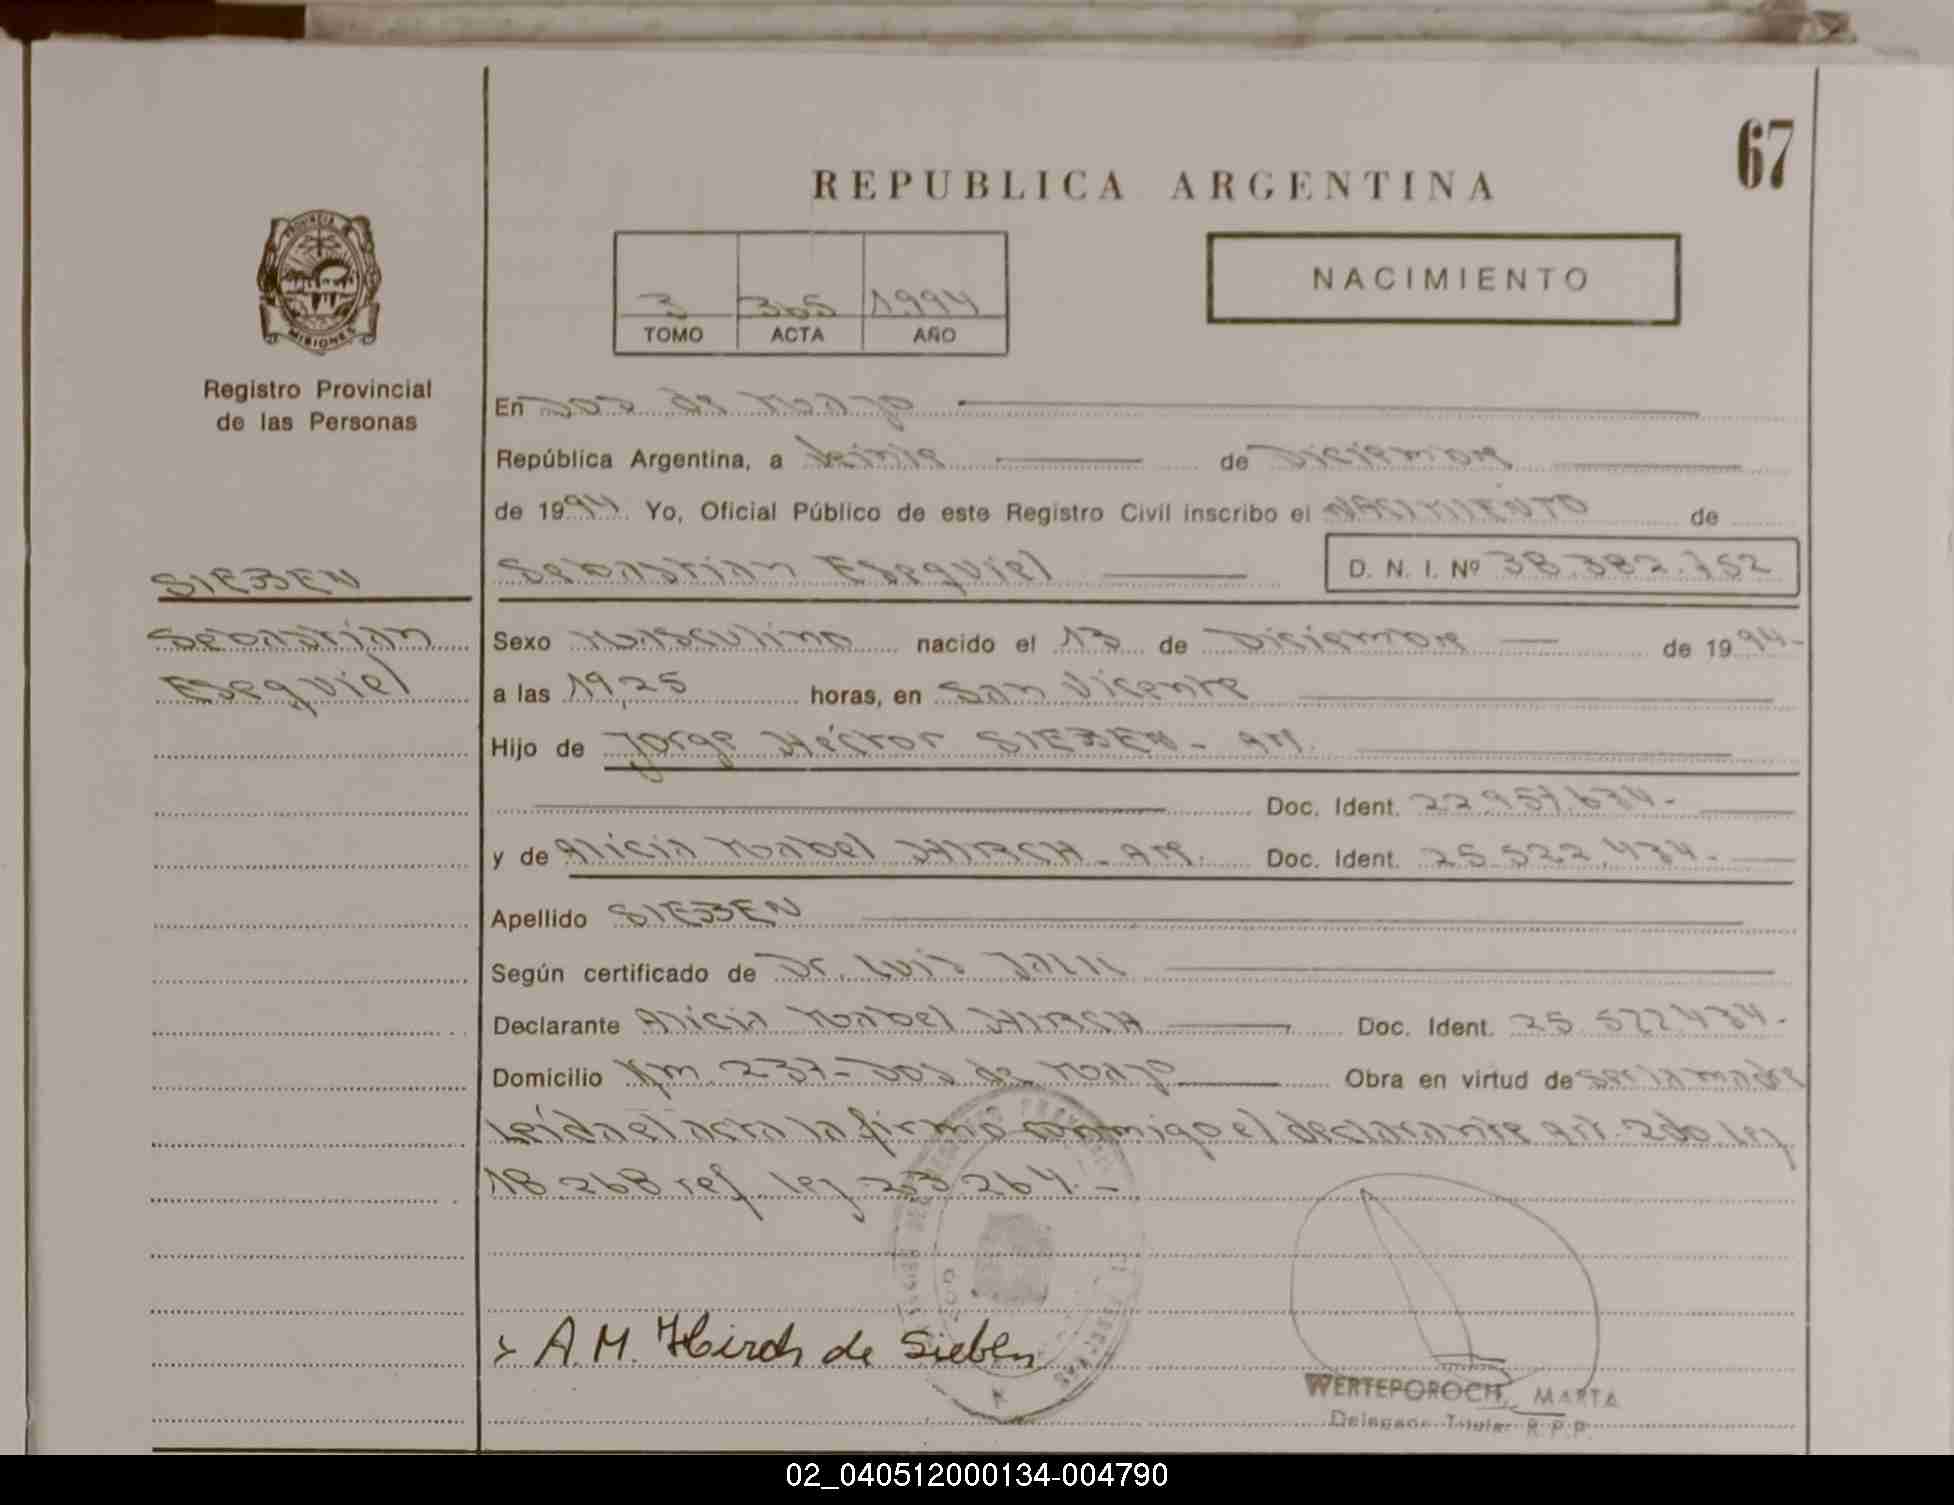 67
REPUBLICA ARGENTINA
PROVINCIA
MISIONES
Registro Provincial
de las Personas
3 365 1.994
TOMO ACTA AÑO
NACIMIENTO
En Dos de Mayo
República Argentina, a Veinte de Diciembre
de 1994. Yo, Oficial Público de este Registro Civil inscribo el NACIMIENTO de
SIEBEN
Sebastián Esequiel D. N. I. Nº 38.382.752
Sebastián
Esequiel
Sexo Masculino nacido el 13 de Diciembre de 1994-
a las 19,25 horas, en San Vicente
Hijo de Jorge Héctor SIEBEN - arg.
Doc. Ident. 22.957.674-
y de Alicia Mabel HIRCH - arg. Doc. Ident. 25.522.434-
Apellido SIEBEN
Según certificado de Dr. Luis
Declarante Alicia Mabel HIRCH Doc. Ident. 25.522.434-
Domicilio Km. 237- Dos de Mayo Obra en virtud de ser la madre
Leída el acta la firma conmigo el declarante art. 2do ley
18.268 ref. ley 23.264.-
A. M. Hirch de Sieben
WERTEPOROCH, MARTA
Delegado Titular R.P.P.
02_040512000134-004790